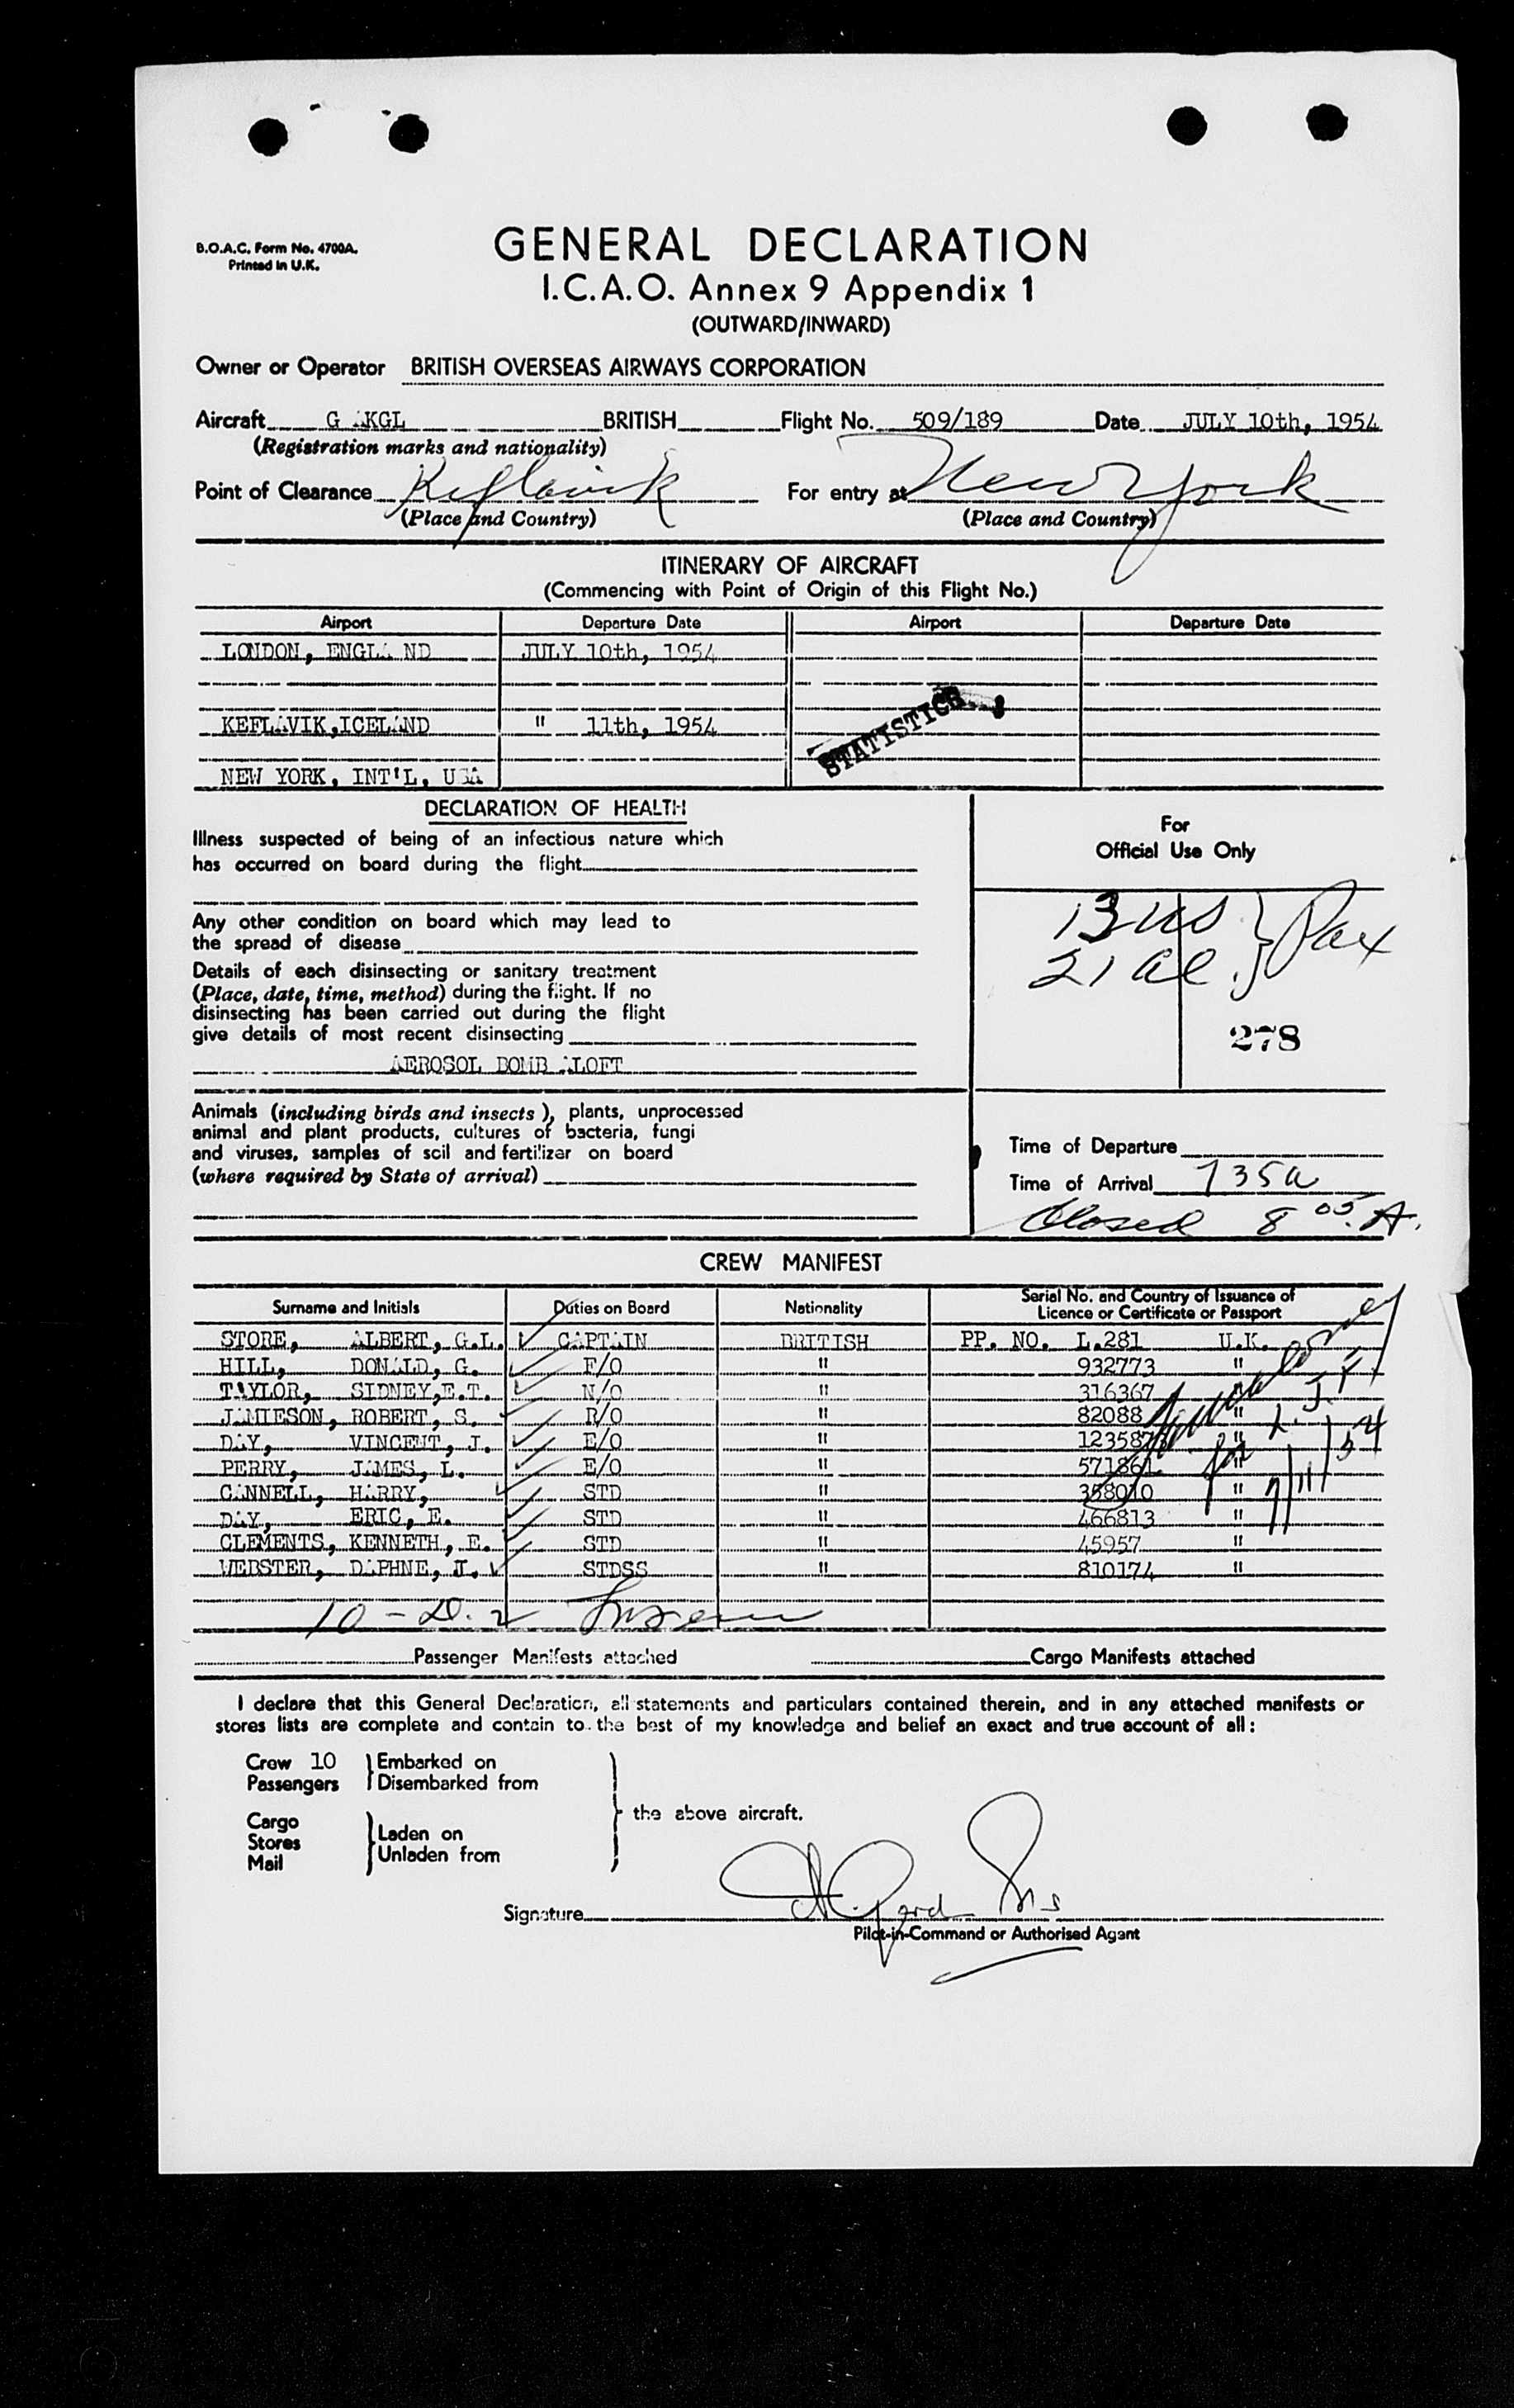 B.O.A.C. Form No. 4700A.
Printed in U.K.
GENERAL DECLARATION
I.C.A.O. Annex 9 Appendix 1
(OUTWARD/INWARD)
Owner or Operator BRITISH OVERSEAS AIRWAYS CORPORATION
Aircraft G AKGL BRITISH Flight No. 509/189 Date JULY 10th, 1954
(Registration marks and nationality)
Point of Clearance Keflavik For entry at New York
(Place and Country) (Place and Country)
ITINERARY OF AIRCRAFT
(Commencing with Point of Origin of this Flight No.)
Airport Departure Date Airport Departure Date
LONDON, ENGLAND JULY 10th, 1954
KEFLAVIK, ICELAND " 11th, 1954
STATISTICS
NEW YORK, INT'L, USA
DECLARATION OF HEALTH
Illness suspected of being of an infectious nature which
has occurred on board during the flight
Any other condition on board which may lead to
the spread of disease
Details of each disinsecting or sanitary treatment
(Place, date, time, method) during the flight. If no
disinsecting has been carried out during the flight
give details of most recent disinsecting
AEROSOL BOMB ALOFT
Animals (including birds and insects), plants, unprocessed
animal and plant products, cultures of bacteria, fungi
and viruses, samples of soil and fertilizer on board
(where required by State of arrival)
For
Official Use Only
13 US } Pax
21 al
278
Time of Departure
Time of Arrival 735a
Closed 8 05 A.
CREW MANIFEST
Surname and Initials Duties on Board Nationality Serial No. and Country of Issuance of
Licence or Certificate or Passport
STORE, ALBERT, G.L. CAPTAIN BRITISH PP. NO. L.281 U.K.
HILL, DONALD, G. F/O " 932773 "
TAYLOR, SIDNEY, E.T. N/O " 316367
JAMIESON, ROBERT, S. R/O " 82088 "
DAY, VINCENT, J. E/O " 123587 "
PERRY, JAMES, L. E/O " 571861 "
CANNELL, HARRY, STD " 358010 "
DAY, ERIC, E. STD " 466813 "
CLEMENTS, KENNETH, E. STD " 45957 "
WEBSTER, DAPHNE, J. STDSS " 810174 "
7/11/54
10 - D. 2
Passenger Manifests attached Cargo Manifests attached
I declare that this General Declaration, all statements and particulars contained therein, and in any attached manifests or
stores lists are complete and contain to the best of my knowledge and belief an exact and true account of all:
Crew 10 } Embarked on
Passengers } Disembarked from
the above aircraft.
Cargo
Stores } Laden on
Mail } Unladen from
Signature
Pilot-in-Command or Authorised Agent